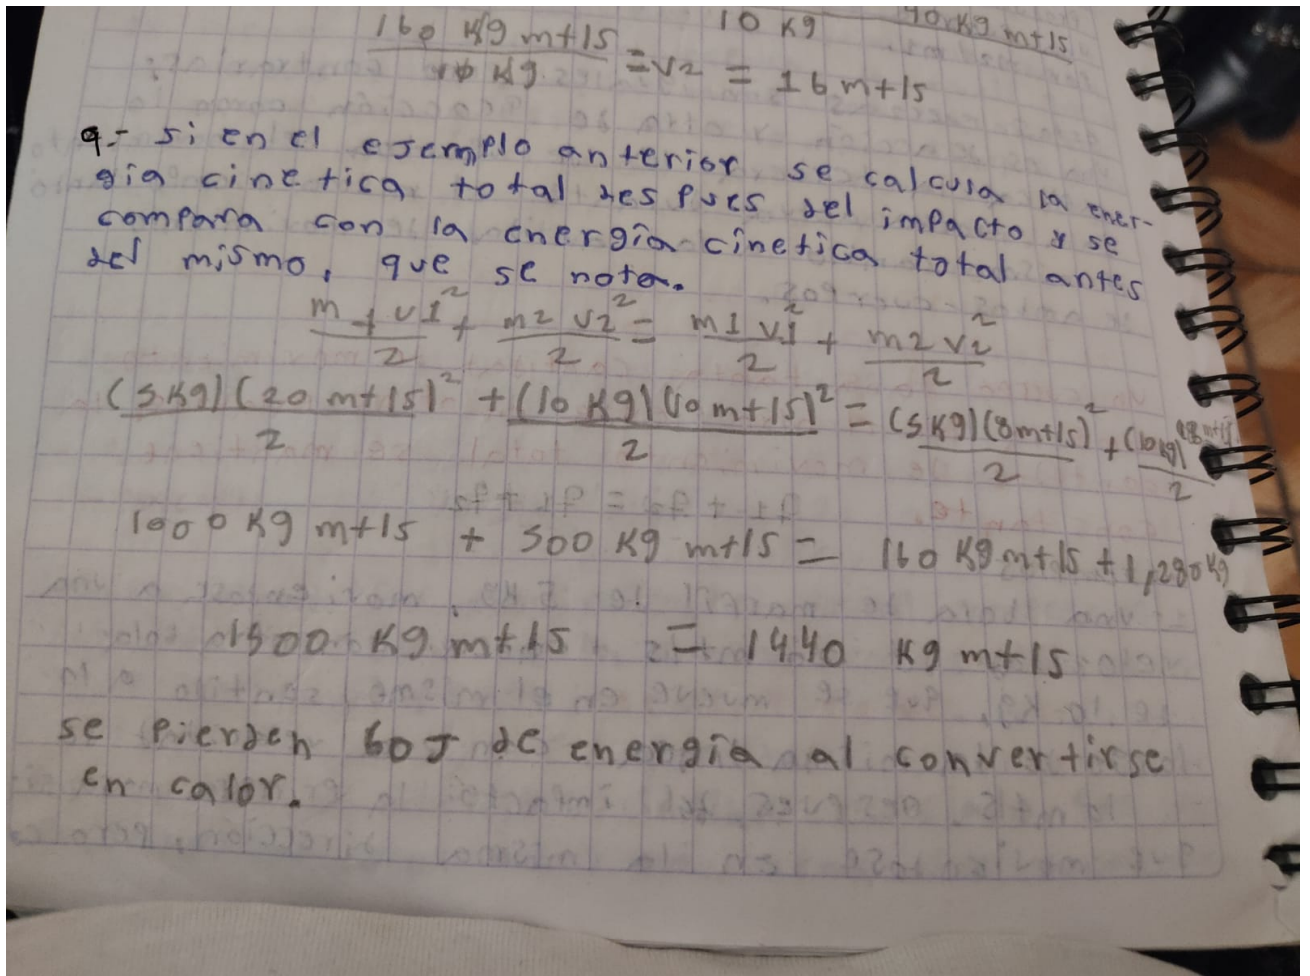 160 Kg mt/s 10 Kg 40 Kg mt/s
10 Kg = v2 = 16 mt/s
9.- si en el ejemplo anterior se calcula la ener-
gia cinetica total despues del impacto y se
compara con la energia cinetica total antes
del mismo, que se nota.
m1 v1² / 2 + m2 v2² / 2 = m1 v1² / 2 + m2 v2² / 2
(5Kg)(20 mt/s)² / 2 + (10 Kg)(10 mt/s)² / 2 = (5Kg)(8mt/s)² / 2 + (10Kg) / 2
1000 Kg mt/s + 500 Kg mt/s = 160 Kg mt/s + 1,280 Kg
1500 Kg mt/s = 1440 Kg mt/s
se pierden 60 J de energia al convertirse
en calor.